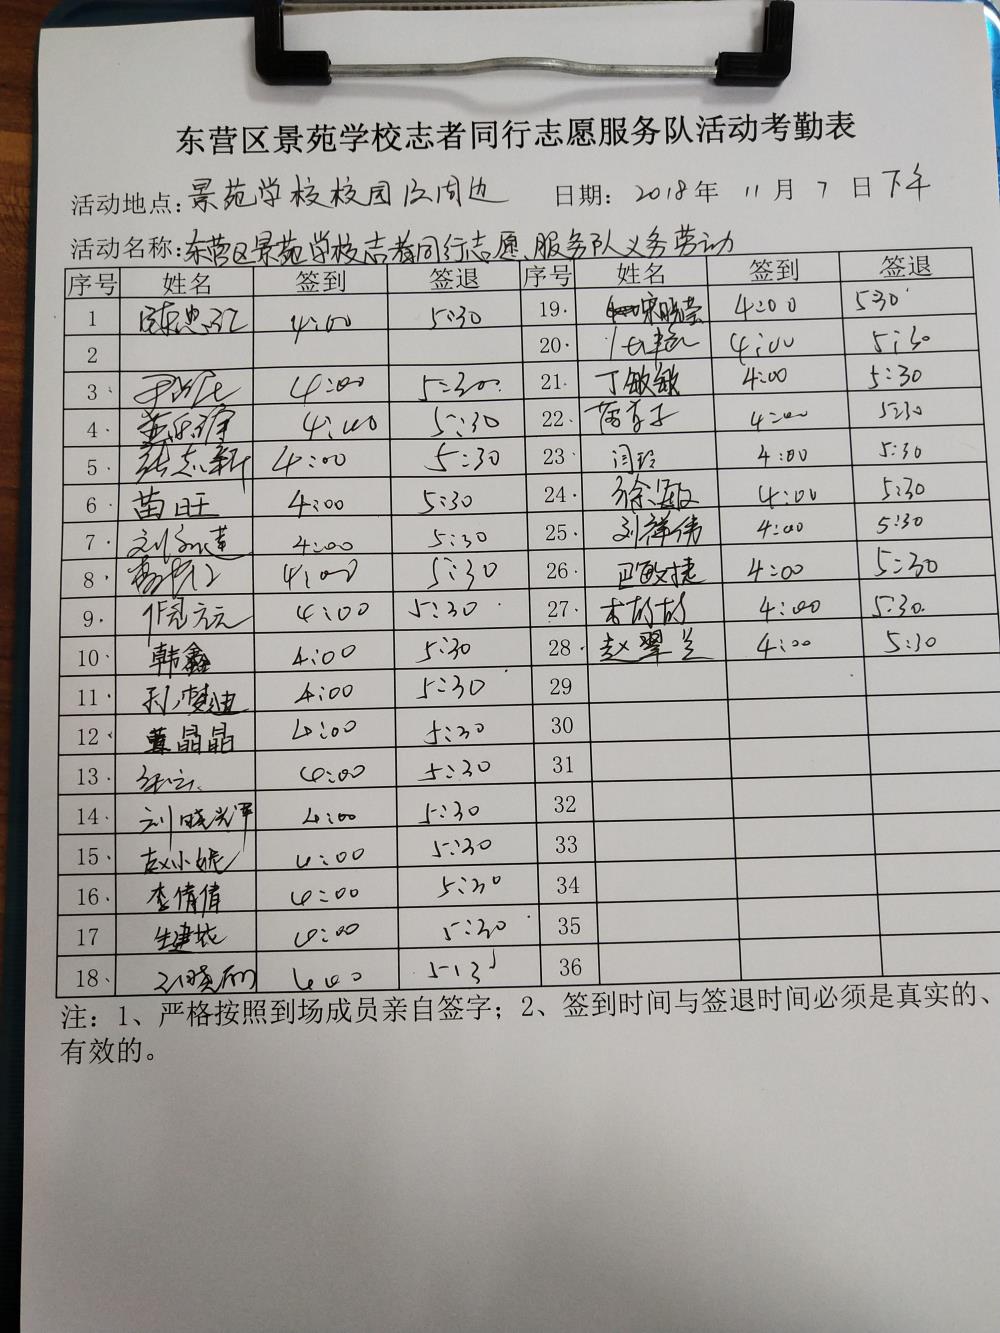 东营区景苑学校志者同行志愿服务队活动考勤表
活动地点:景苑学校校园及周边 日期: 2018年 11月 7日下午
活动名称:东营区景苑学校志者同行志愿服务队义务劳动
序号 姓名 签到 签退 序号 姓名 签到 签退
1 4:00 5:30 19. 宋晓莹 4:00 5:30
2 20. 4:00 5:30
3 4:00 5:30 21. 丁敏敏 4:00 5:30
4. 4:00 5:30 22. 4:00 5:30
5. 张志新 4:00 5:30 23 闫玲 4:00 5:30
6. 苗旺 4:00 5:30 24. 徐海敏 4:00 5:30
7. 4:00 5:30 25. 刘祥伟 4:00 5:30
8. 4:00 5:30 26. 巴敏捷 4:00 5:30
9. 4:00 5:30 27. 4:00 5:30
10. 韩鑫 4:00 5:30 28. 赵翠兰 4:00 5:30
11. 4:00 5:30 29
12. 晶晶 4:00 5:30 30
13. 4:00 5:30 31
14. 刘晓 4:00 5:30 32
15. 赵小妮 4:00 5:30 33
16. 李倩倩 4:00 5:30 34
17 4:00 5:30 35
18. 4:00 5:30 36
注:1、严格按照到场成员亲自签字;2、签到时间与签退时间必须是真实的、
有效的。